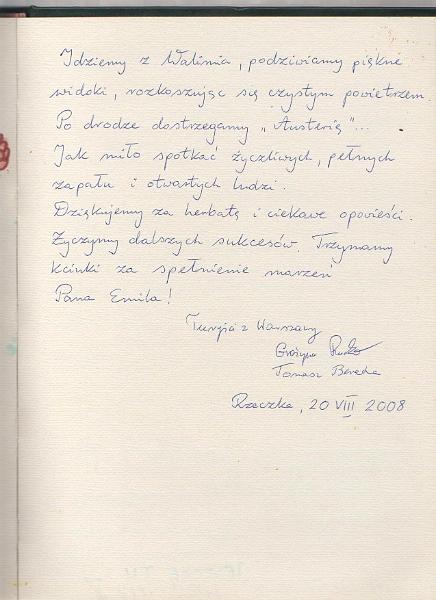 Idziemy z Walimia, podziwiamy piękne
widoki, rozkoszując się czystym powietrzem.
Po drodze dostrzegamy „Austerię"...
Jak miło spotkać życzliwych, pełnych
zapału i otwartych ludzi.
Dziękujemy za herbatę i ciekawe opowieści.
Życzymy dalszych sukcesów. Trzymamy
kciuki za spełnienie marzeń
Pana Emila!
z Warszawy
Grażyna
Tomasz
Rzeczka, 20 VIII 2008